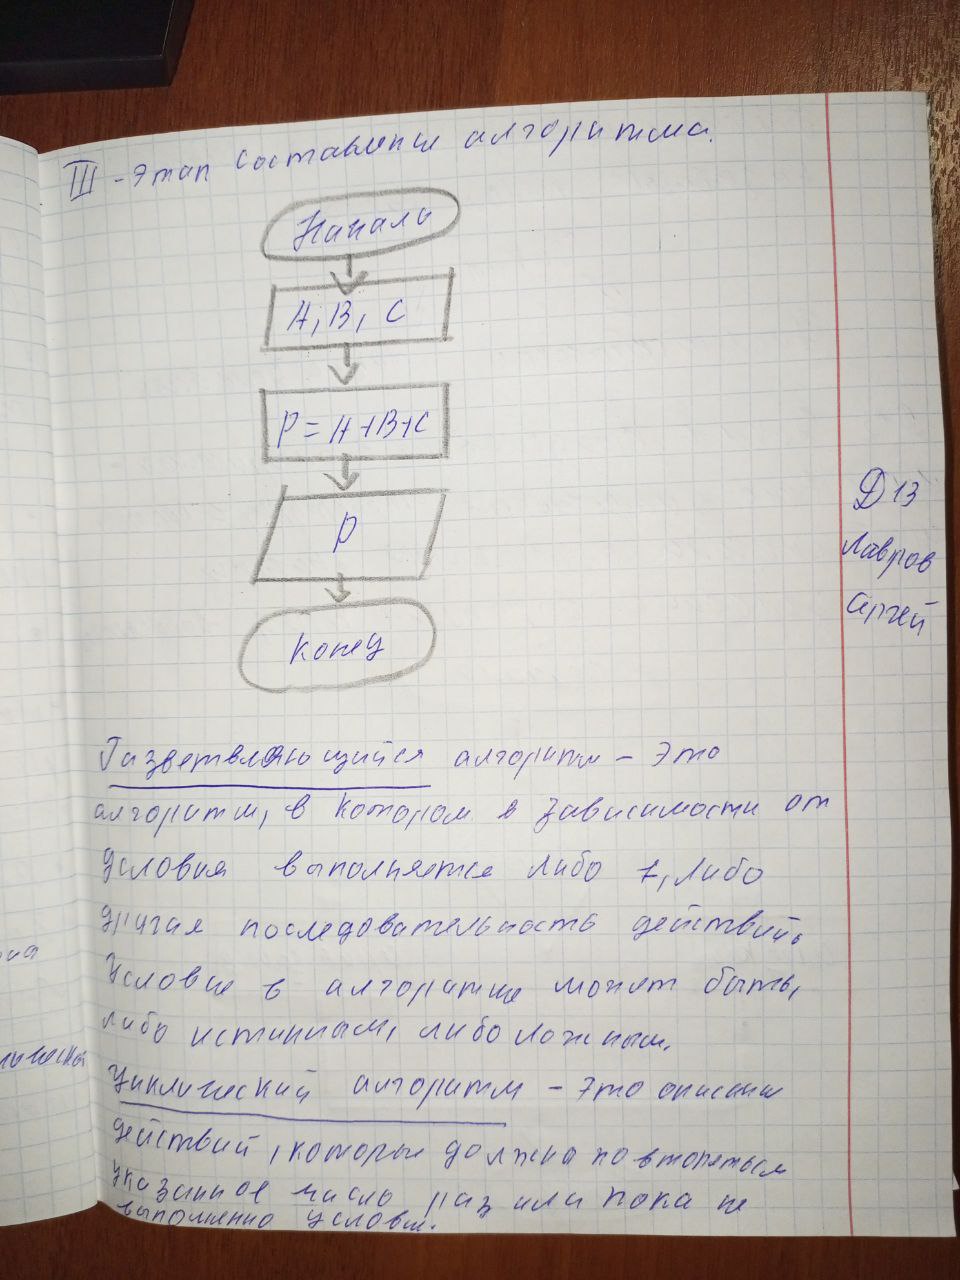 III - Этап составления алгоритма.
Начало
A, B, C
P = A + B + C
P
Конец
Д 13
Лавров
Сергей
Разветвляющийся алгоритм - это
алгоритм, в котором в зависимости от
условия выполняется либо 1, либо
другая последовательность действий.
Условие в алгоритме может быть,
либо истинным, либо ложным.
Циклический алгоритм - это описание
действий, которые должны повторяться
указанное число раз или пока не
выполнено условие.